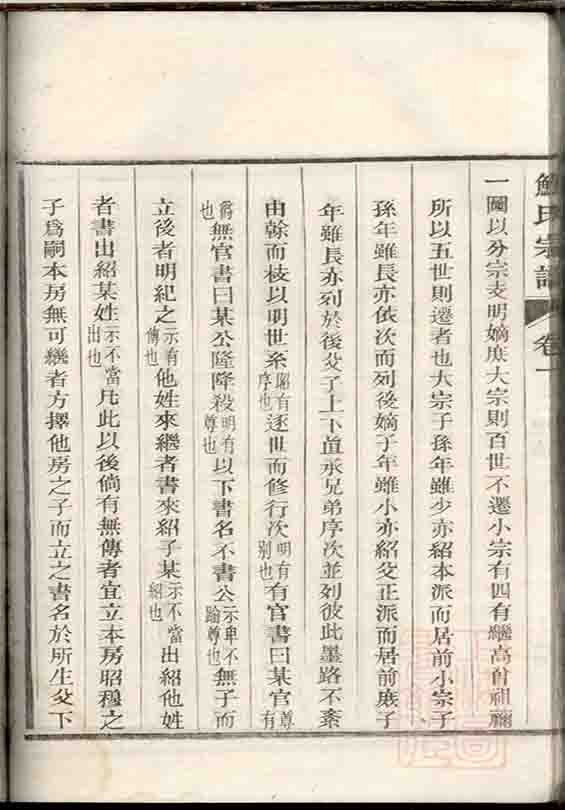 鮑氏宗譜 卷一
一圖以分宗支明嫡庶大宗則百世不遷小宗有四有繼高曾祖禰
所以五世則遷者也大宗子孫年雖少亦紹本派而居前小宗子
孫年雖長亦依次而列後嫡子年雖小亦紹父正派而居前庶子
年雖長亦列於後父子上下直承兄弟序次並列彼此墨路不紊
由幹而枝以明世系昭有序也逐世而修行次明有別也有官書曰某官有尊
爵也無官書曰某公隆降殺明有尊也以下書名不書公示卑不踰尊也無子而
立後者明紀之示有傳也他姓來繼者書來紹子某示不當紹也出紹他姓
者書出紹某姓示不當出也凡此以後倘有無傳者宜立本房昭穆之
子爲嗣本房無可繼者方擇他房之子而立之書名於所生父下